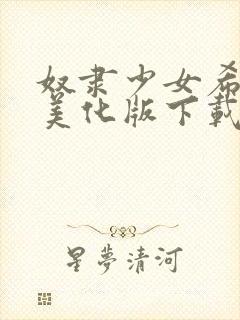 奴隶少女希
美化版下載
星夢清河